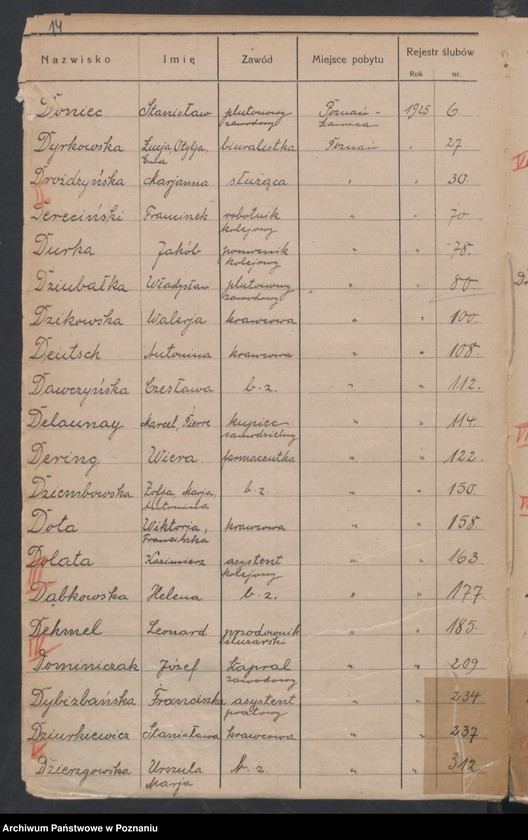 14
Nazwisko Imię Zawód Miejsce pobytu Rejestr ślubów
Rok nr.
Doniec Stanisław plutonowy zawodowy Poznań - Ławica 1925 6
Dyrkowska Łucja, Otylja, Ewa biuralistka Poznań " 27
Droździyńska Marjanna służąca " " 30.
II
Dereciński Franciszek robotnik kolejowy " " 70
Durka Jakób pomocnik kolejowy " " 78.
Dziubałka Władysław plutonowy zawodowy " " 80.
Dzikowska Walerja krawcowa " " 100.
Deutsch Antonina krawcowa " " 108.
Dawczyńska Czesława b. z. " " 112.
Delaunay Marcel, Pierre kupiec samodzielny " " 114.
Dering Wiera farmaceutka " " 122.
Dziembowska Zofja, Marja, Antonina b. z. " " 150.
Dota Wiktorja, Franciszka krawcowa " " 158.
Dolata Kazimierz asystent kolejowy " " 163
III
Dąbkowska Helena b. z. " " 177
Dehmel Leonard przodownik ślusarski " " 185.
IV
Dominiczak Józef kapral zawodowy " " 209
Dybizbańska Franciszka asystent pocztowy " " 234
Dziurkiewicz Stanisława krawcowa " " 237
V
Dzierzgowska Urszula Marja b. z. " " 312
Archiwum Państwowe w Poznaniu